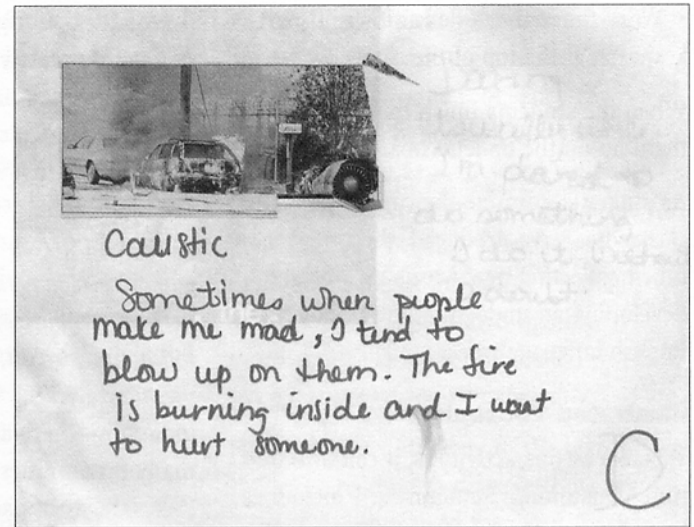 Caustic
Sometimes when people
make me mad, I tend to
blow up on them. The fire
is burning inside and I want
to hurt someone.
C